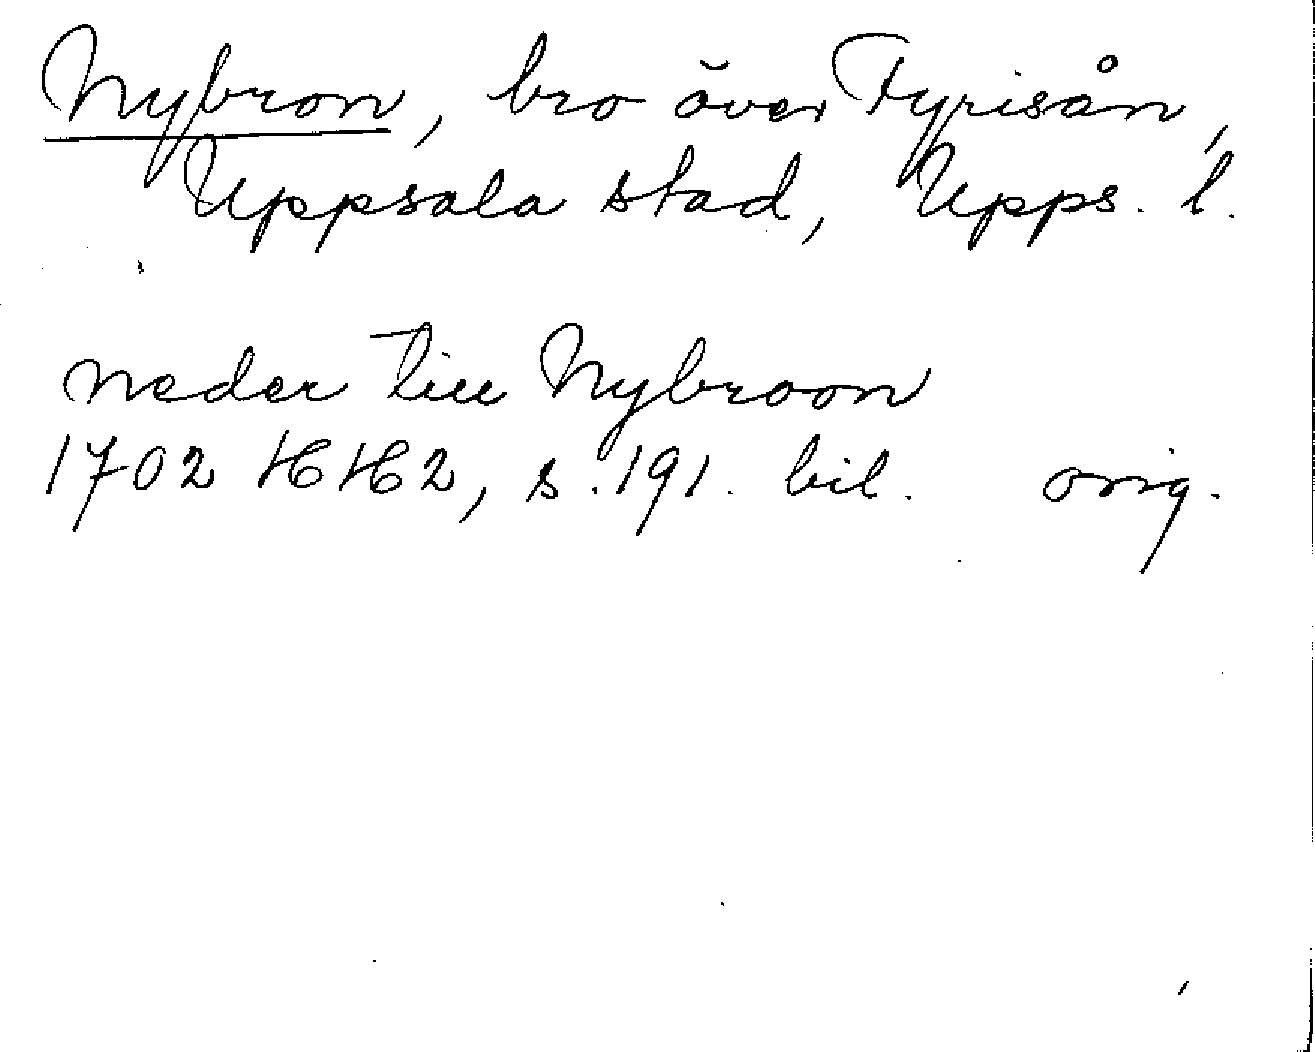 Nybron, bro över Fyrisån,
Uppsala stad, Upps. l.
neder till Nybroon
1702 HH2, s. 191. bil. orig.